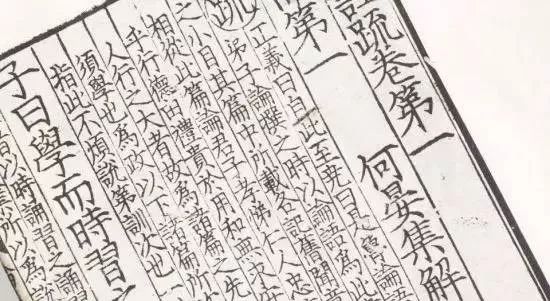 語疏卷第一
何晏集解
第一
疏
正義曰自此至堯曰是魯論語
弟子論撰之時以論語為此
之小目其篇中所載各記舊聞意
相從此篇論君子孝悌仁人忠
乎行德由禮貴於用和無求安
人行之大者故為諸篇之先
須學也為政以下諸篇所
指此不煩說第訓次也一
子曰學而時習之
以時誦習之誦
所以為說